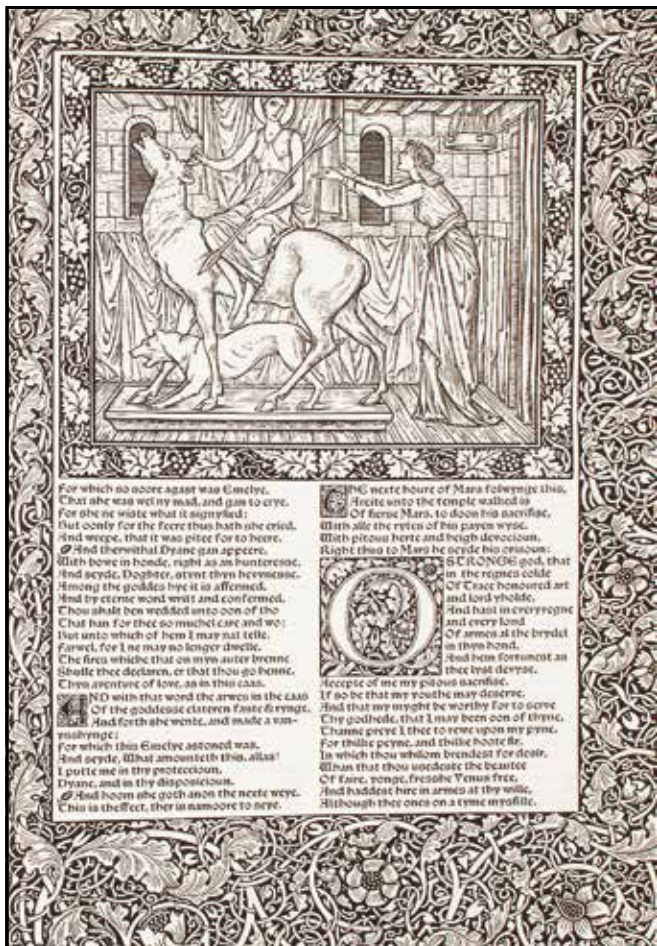 For which so soore agast was Emelye,
That she was wel ny mad, and gan to crye,
For she ne wiste what it signyfied;
But oonly for the feere thus hath she cried,
And weepe, that it was pitee for to heere.
And therwithal Dyane gan appeere,
With bowe in honde, right as an hunteresse,
And seyde, Doghter, stynt thyn hevynesse.
Among the goddes hye it is affermed,
And by eterne word writ and confermed,
Thou shalt ben wedded unto oon of tho
That han for thee so muchel care and wo;
But unto which of hem I may nat telle.
Farwel, for I ne may no lenger dwelle.
The fires whiche that on myn auter brenne
Shulle thee declaren, er that thou go henne,
Thyn aventure of love, as in this caas.
AND with that word the arwes in the caas
Of the goddesse clateren faste & rynge,
And forth she wente, and made a van-
ysshynge;
For which this Emelye astoned was,
And seyde, What amounteth this, allas!
I putte me in thy proteccioun,
Dyane, and in thy disposicioun.
And hoom she goth anon the nexte weye.
This is theffect, ther is namoore to seye.
THE nexte houre of Mars folwynge this,
Arcite unto the temple walked is
Of fierse Mars, to doon his sacrifise,
With alle the rytes of his payen wyse.
With pitous herte and heigh devocioun,
Right thus to Mars he seyde his orisoun:
O STRONGE god, that
in the regnes colde
Of Trace honoured art
and lord yholde,
And hast in every regne
and every lond
Of armes al the brydel
in thyn hond,
And hem fortunest as
thee lyst devyse,
Accepte of me my pitous sacrifise.
If so be that my youthe may deserve,
And that my myght be worthy for to serve
Thy godhede, that I may been oon of thyne,
Thanne preye I thee to rewe upon my pyne.
For thilke peyne, and thilke hoote fir,
In which thou whilom brendest for desir,
Whan that thou usedeste the beautee
Of faire, yonge, fresshe Venus free,
And haddest hire in armes at thy wille,
Although thee ones on a tyme mysfille,